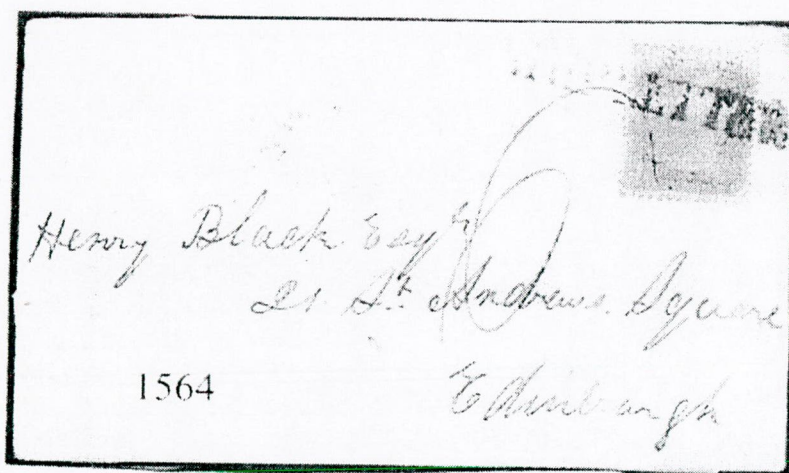 LETTER
Henry Black Esqr
21 St. Andrews Square
Edinburgh
1564